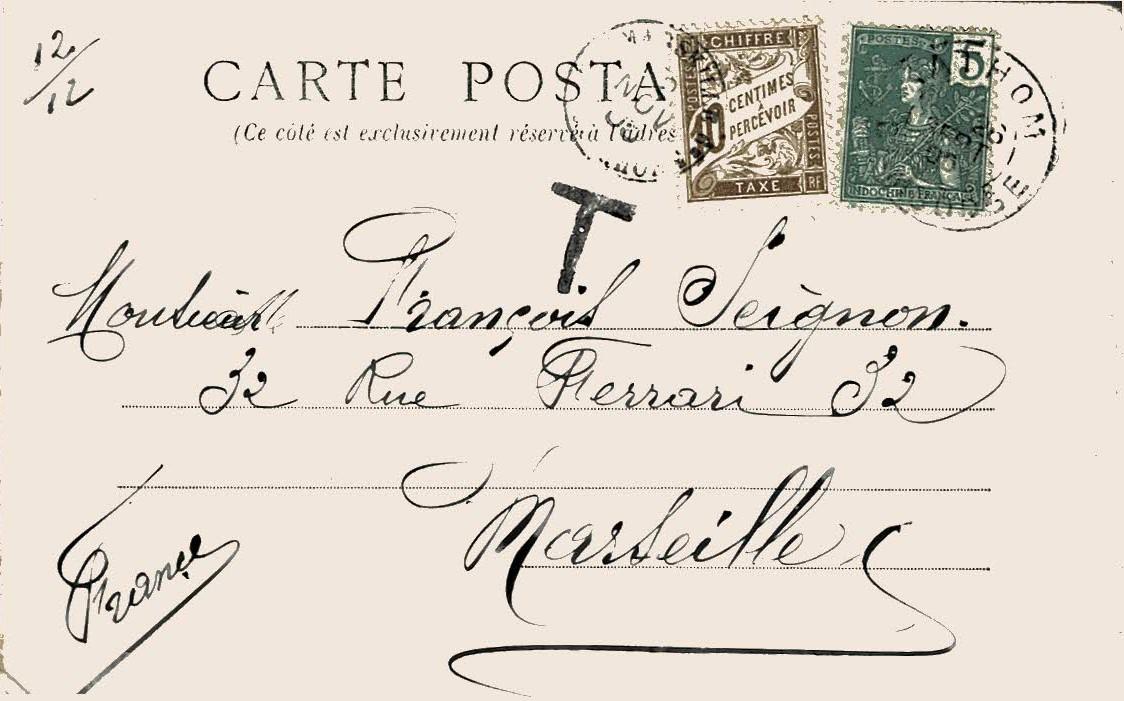 12/12
CARTE POSTA
(Ce côté est exclusivement réservé à l'adres
CHIFFRE
POSTES
10
CENTIMES
À
PERCEVOIR
POSTES
TAXE
RF
POSTES
5
INDOCHINE FRANÇAISE
NOV
T
François Seignon.
32 Rue Ferrari 32
Marseille
France